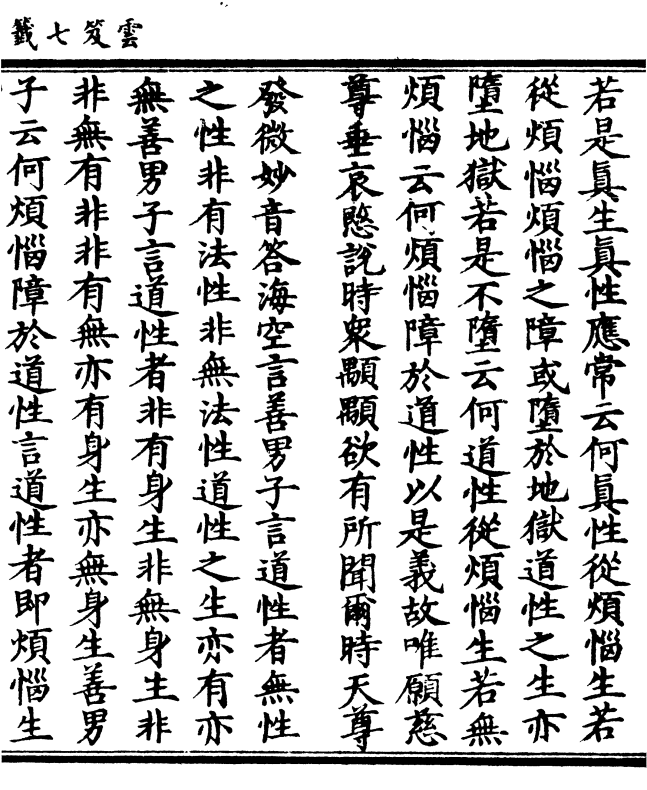 雲笈七籤
若是真生真性應常云何真性從煩惱生若
從煩惱煩惱之障或墮於地獄道性之生亦
墮地獄若是不墮云何道性從煩惱生若無
煩惱云何煩惱障於道性以是義故唯願慈
尊垂哀愍說時眾顒顒欲有所聞爾時天尊
發微妙音答海空言善男子言道性者無性
之性非有法性非無法性道性之生亦有亦
無善男子言道性者非有身生非無身生非
非無有非非有無亦有身生亦無身生善男
子云何煩惱障於道性言道性者即煩惱生